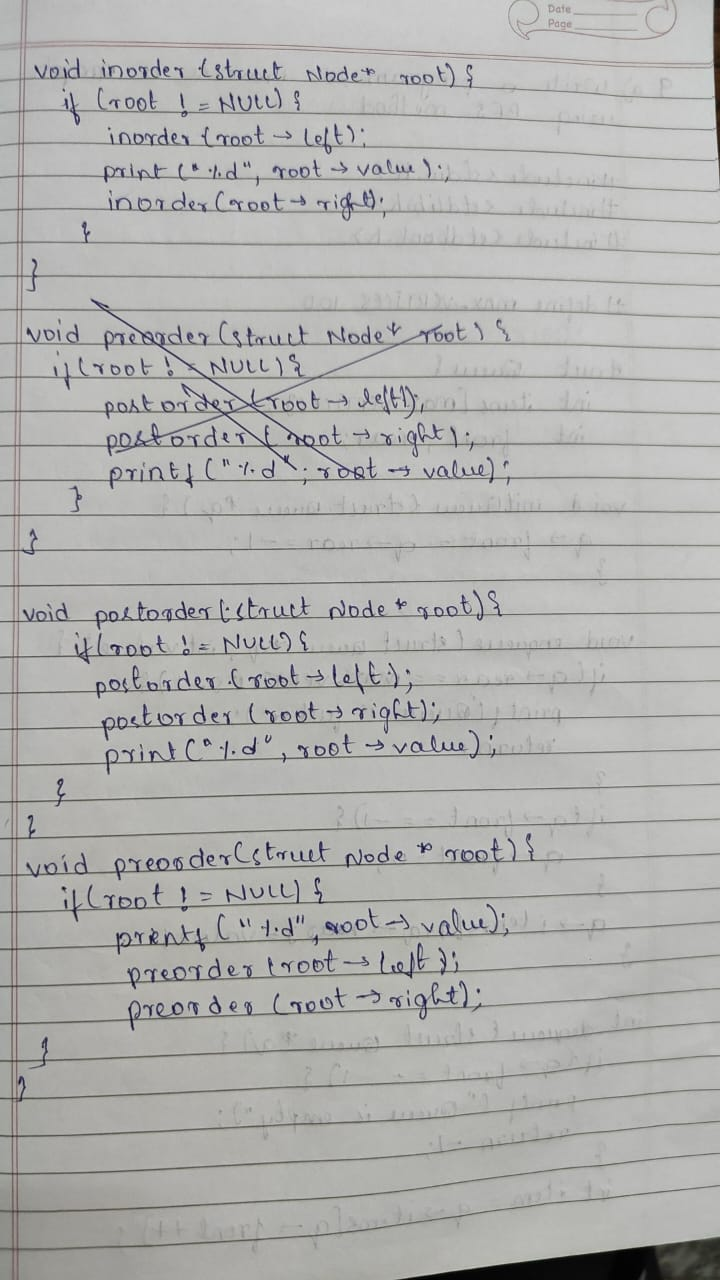 Date
Page
void inorder (struct Node* root) {
if (root != NULL) {
inorder (root → left);
print ("%d", root → value);
inorder (root → right);
}
}
void preorder (struct Node* root) {
if (root != NULL) {
postorder (root → left);
postorder (root → right);
printf ("%d", root → value);
}
}
void postorder (struct Node * root) {
if (root != NULL) {
postorder (root → left);
postorder (root → right);
print ("%d", root → value);
}
}
void preorder (struct Node * root) {
if (root != NULL) {
printf ("%d", root → value);
preorder (root → left);
preorder (root → right);
}
}